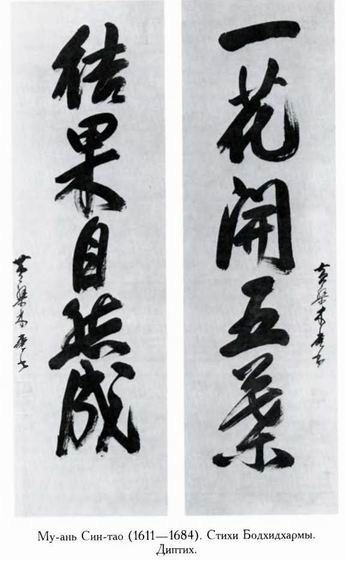 一花開五葉
黄檗木菴書
結果自然成
黄檗木菴書
Му-ань Син-тао (1611—1684). Стихи Бодхидхармы.
Диптих.